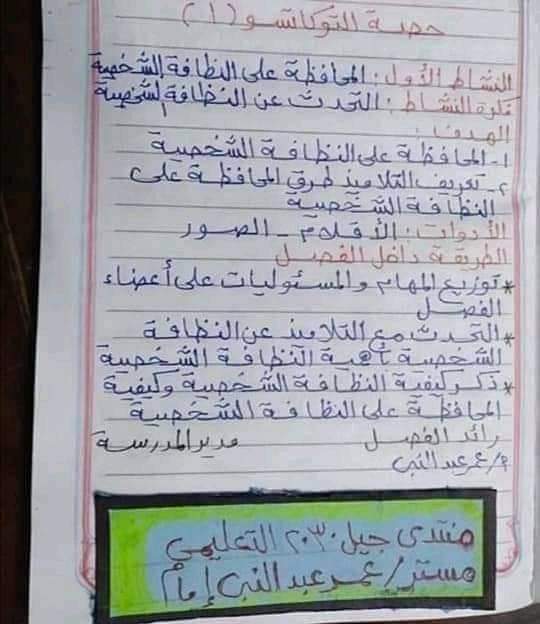 حصة التوكاتسو (١)
النشاط الأول : المحافظة على النظافة الشخصية
فكرة النشاط : التحدث عن النظافة الشخصية
الهدف :
١- المحافظة على النظافة الشخصية
٢- تعريف التلاميذ طرق المحافظة على
النظافة الشخصية
الأدوات : الأقلام - الصور
الطريقة داخل الفصل
* توزيع المهام والمسئوليات على أعضاء
الفصل
* التحدث مع التلاميذ عن النظافة
الشخصية أهمية النظافة الشخصية
* ذكر كيفية النظافة الشخصية وكيفية
المحافظة على النظافة الشخصية
رائد الفصل مدير المدرسة
أ/عمر عبد النبى
منتدى جيل ٢٠٣٠ التعليمي
مستر/عمر عبد النبى إمام